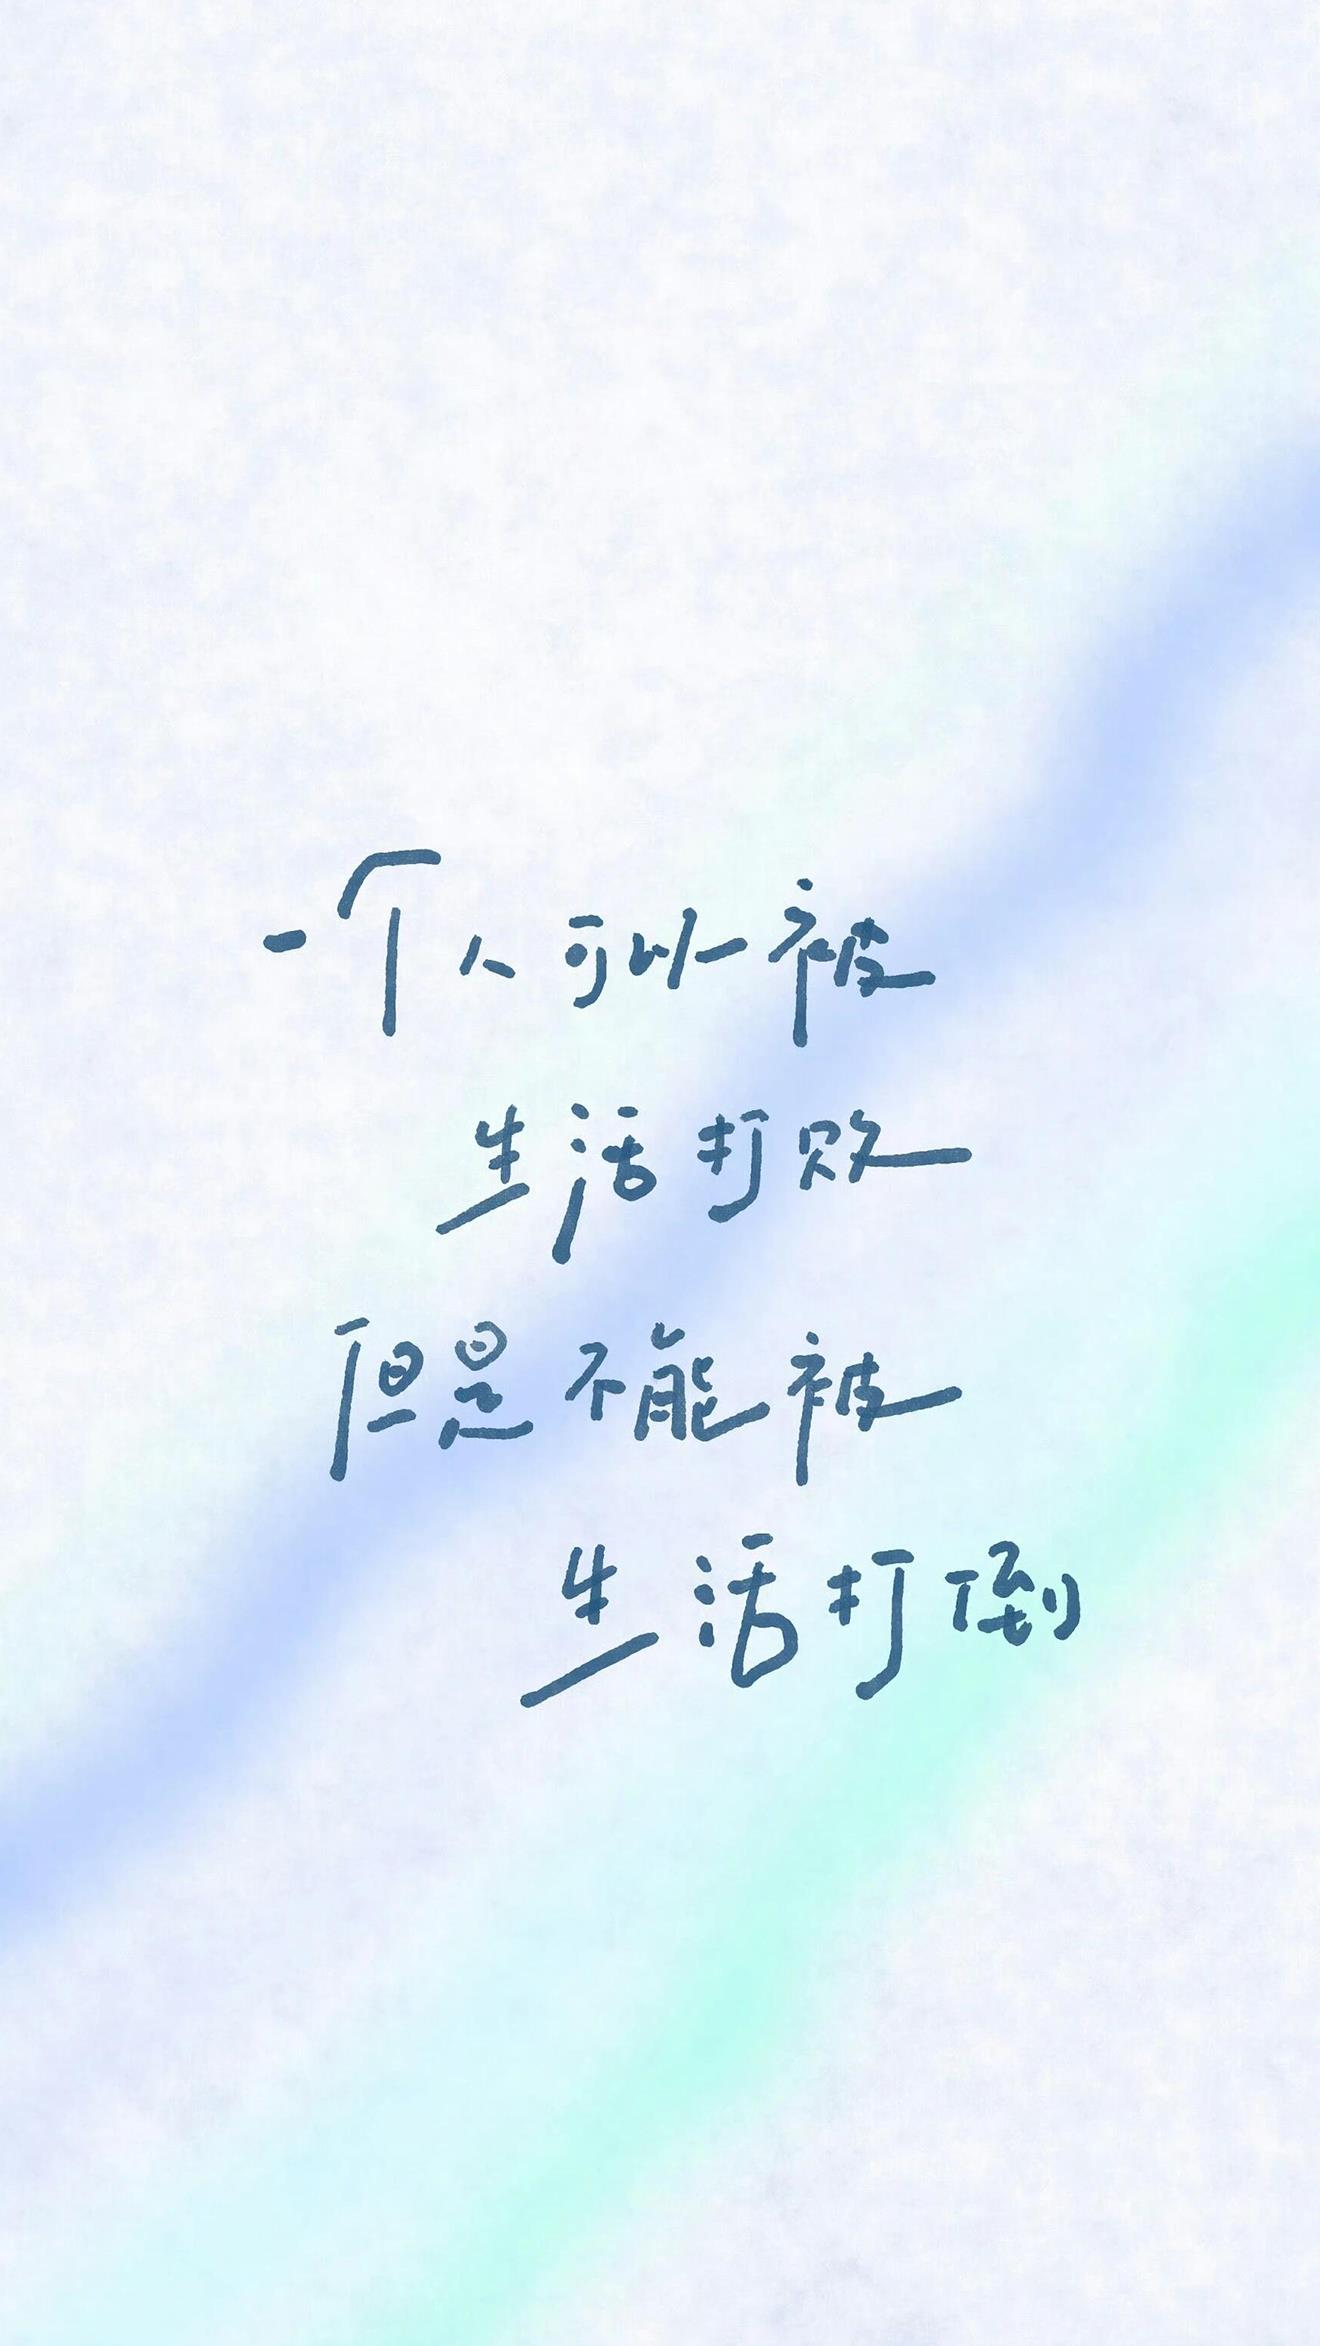 一个人可以被
生活打败
但是不能被
生活打倒